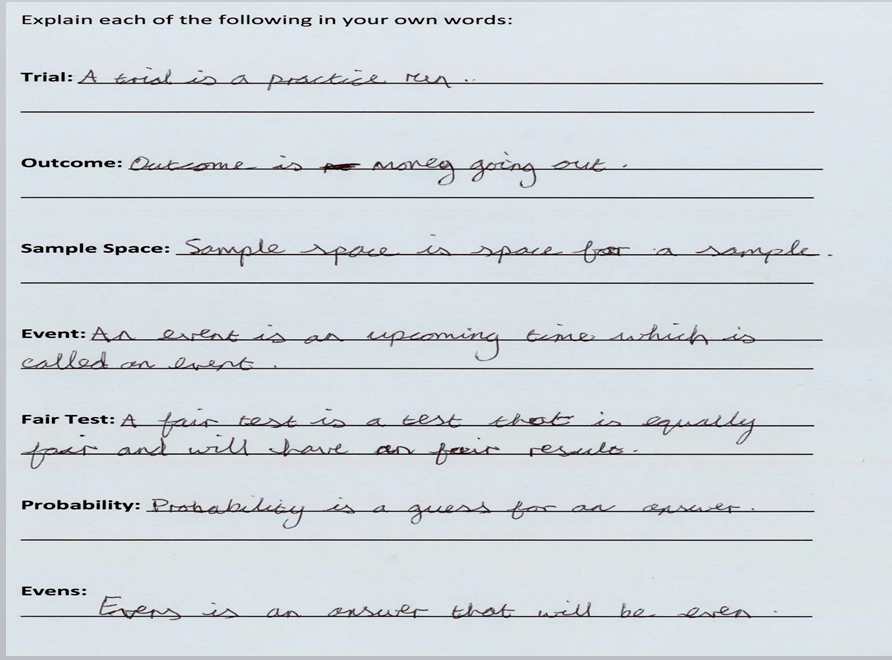 Explain each of the following in your own words:
Trial: A trial is a practice run.
Outcome: Outcome is money going out.
Sample Space: Sample space is space for a sample.
Event: An event is an upcoming time which is
called an event.
Fair Test: A fair test is a test that is equally
fair and will have an fair results.
Probability: Probability is a guess for an answer.
Evens:
Evens is an answer that will be even.